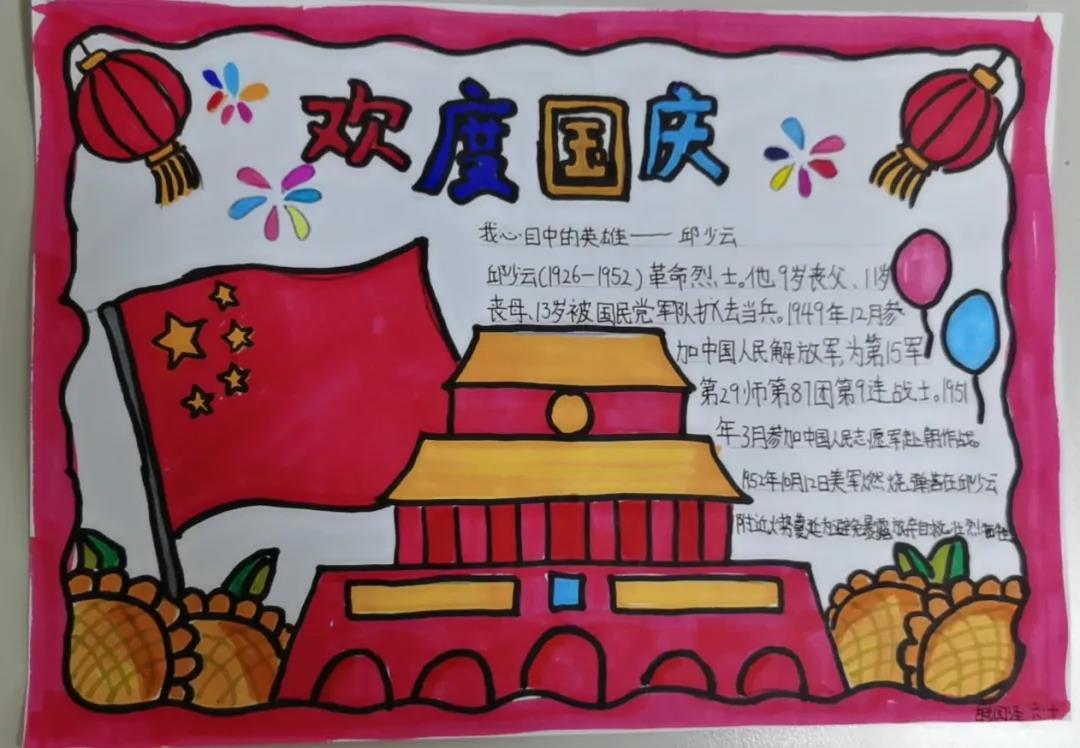 欢度国庆
我心目中的英雄——邱少云
邱少云(1926-1952)革命烈士。他9岁丧父、11岁
丧母、13岁被国民党军队抓去当兵。1949年12月参
加中国人民解放军为第15军
第29师第87团第9连战士。1951
年3月参加中国人民志愿军赴朝作战。
1952年10月12日美军燃烧弹落在邱少云
附近火势蔓延为避免暴露放弃自救壮烈牺牲
六·十